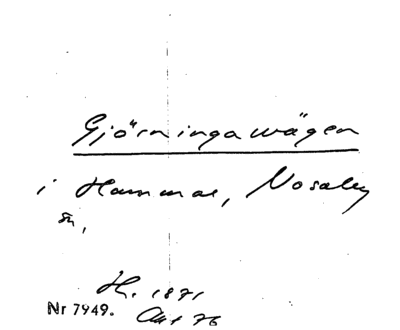 Gjörningawägen
i Hammar, Nosaby
sn,
H. 1871
Nr 7949.
76